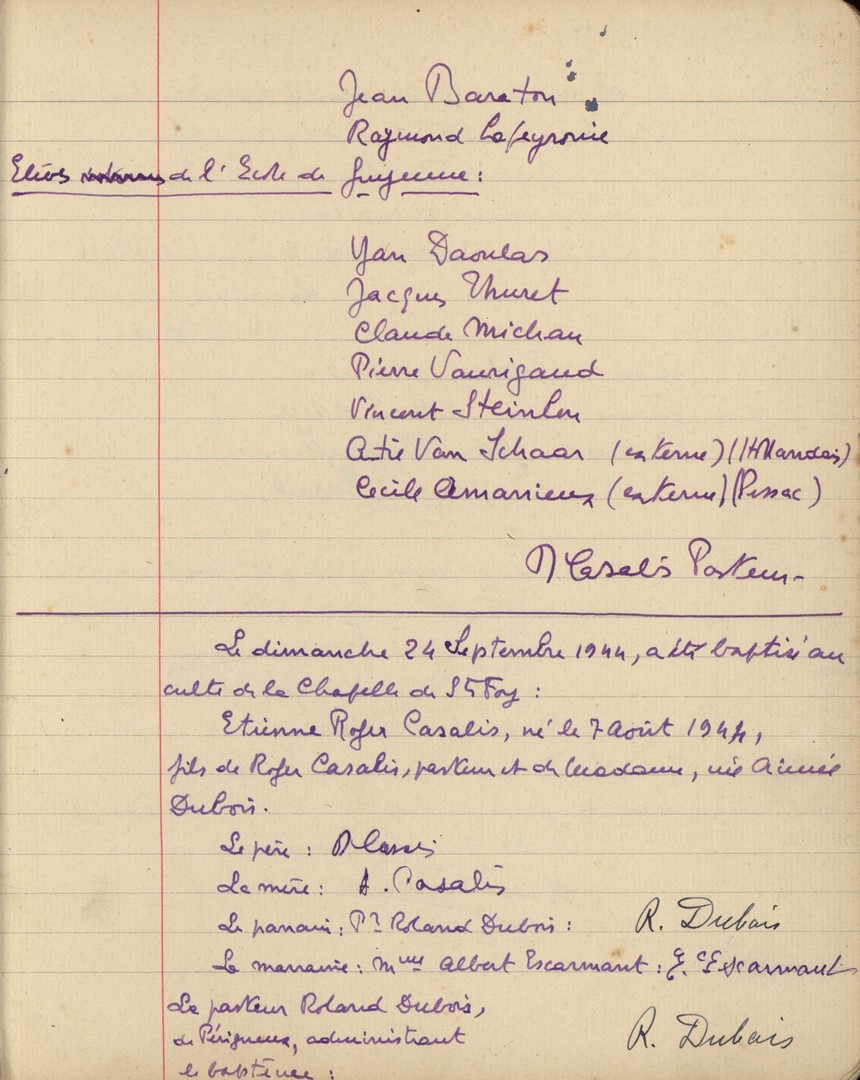 Jean Baraton
Raymond Lafeyronie
Elèves de l'Ecole de Guyenne :
Yan Daoulas
Jacques Thuret
Claude Michau
Pierre Vaurigaud
Vincent Steinlen
Van Schaar (externe) (Hollandais)
Cécile Amanieux (externe) (Pessac)
R Casalis Pasteur
Le dimanche 24 Septembre 1944, a été baptisé au
culte de la Chapelle de Ste Foy :
Etienne Roger Casalis, né le 7 Août 1944,
fils de Roger Casalis, pasteur et de Madame, née Aimée
Dubois.
Le père : R Casalis
La mère : A. Casalis
Le parrain : Pr Roland Dubois : R. Dubois
La marraine : Mme Albert Escarmant : E. Escarmant
Le pasteur Roland Dubois,
de Périgueux, administrant
le baptême : R. Dubois